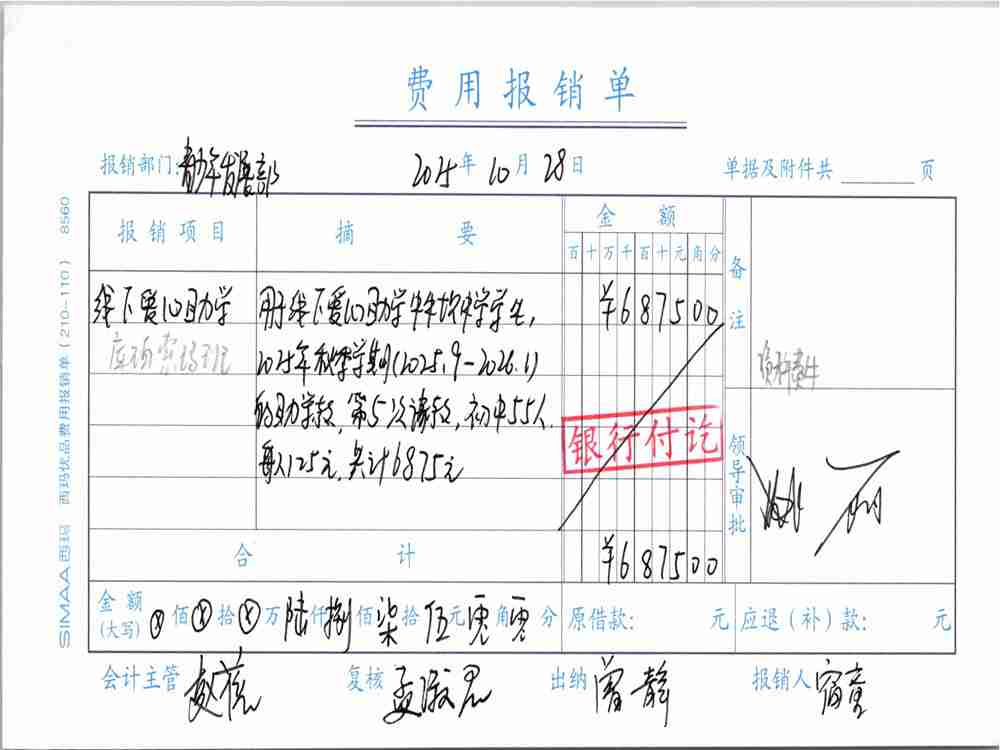 费用报销单
报销部门:青少年发展部 2025年 10月 28日 单据及附件共 页
报销项目 摘要 金额 备注
百十万千百十元角分
线下爱心助学 用于线下爱心助学 中学学生, ¥687500
2025年秋季学期(2025.9-2026.1)
的助学款,第5次 款,初中55人,
每人125元,共计6875元
银行付讫
领导审批
合计 ¥687500
金额(大写) ⊗佰⊗拾⊗万陆仟捌佰柒拾伍元零角零分 原借款: 元 应退(补)款: 元
会计主管 复核 孟淑君 出纳 曾静 报销人
SIMAA 西玛 西玛优品费用报销单(210-110) 8560